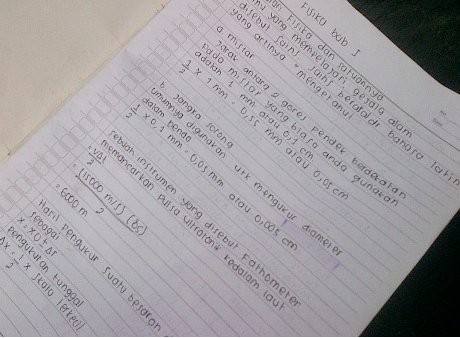 FISIKA bab I
Fisika dan satuannya
ilmu yang mempelajari gejala alam
disebut sains. sains berasal dr bahasa latin
yang artinya = mengetahui
a. mistar
Jarak antara 2 gores pendek berdekatan
Pada mistar yang biasa anda gunakan
adalah 1 mm atau 0,1 cm
1/2 x 1 mm = 0,5 mm atau 0,05 cm
b. Jangka sorong
umumnya digunakan utk mengukur diameter
dalam benda
1/2 x 0,1 mm = 0,05 mm atau 0,005 cm
sebuah instrumen yang disebut Fathometer
memancarkan pulsa ultrasonic kedalam laut
(1500 m/s) (8s)
2
= 6000 m
Hasil pengukur suatu besaran
sebagai
x = x0 + Δx
pengukuran tunggal
Δx = 1/2 x skala terkecil